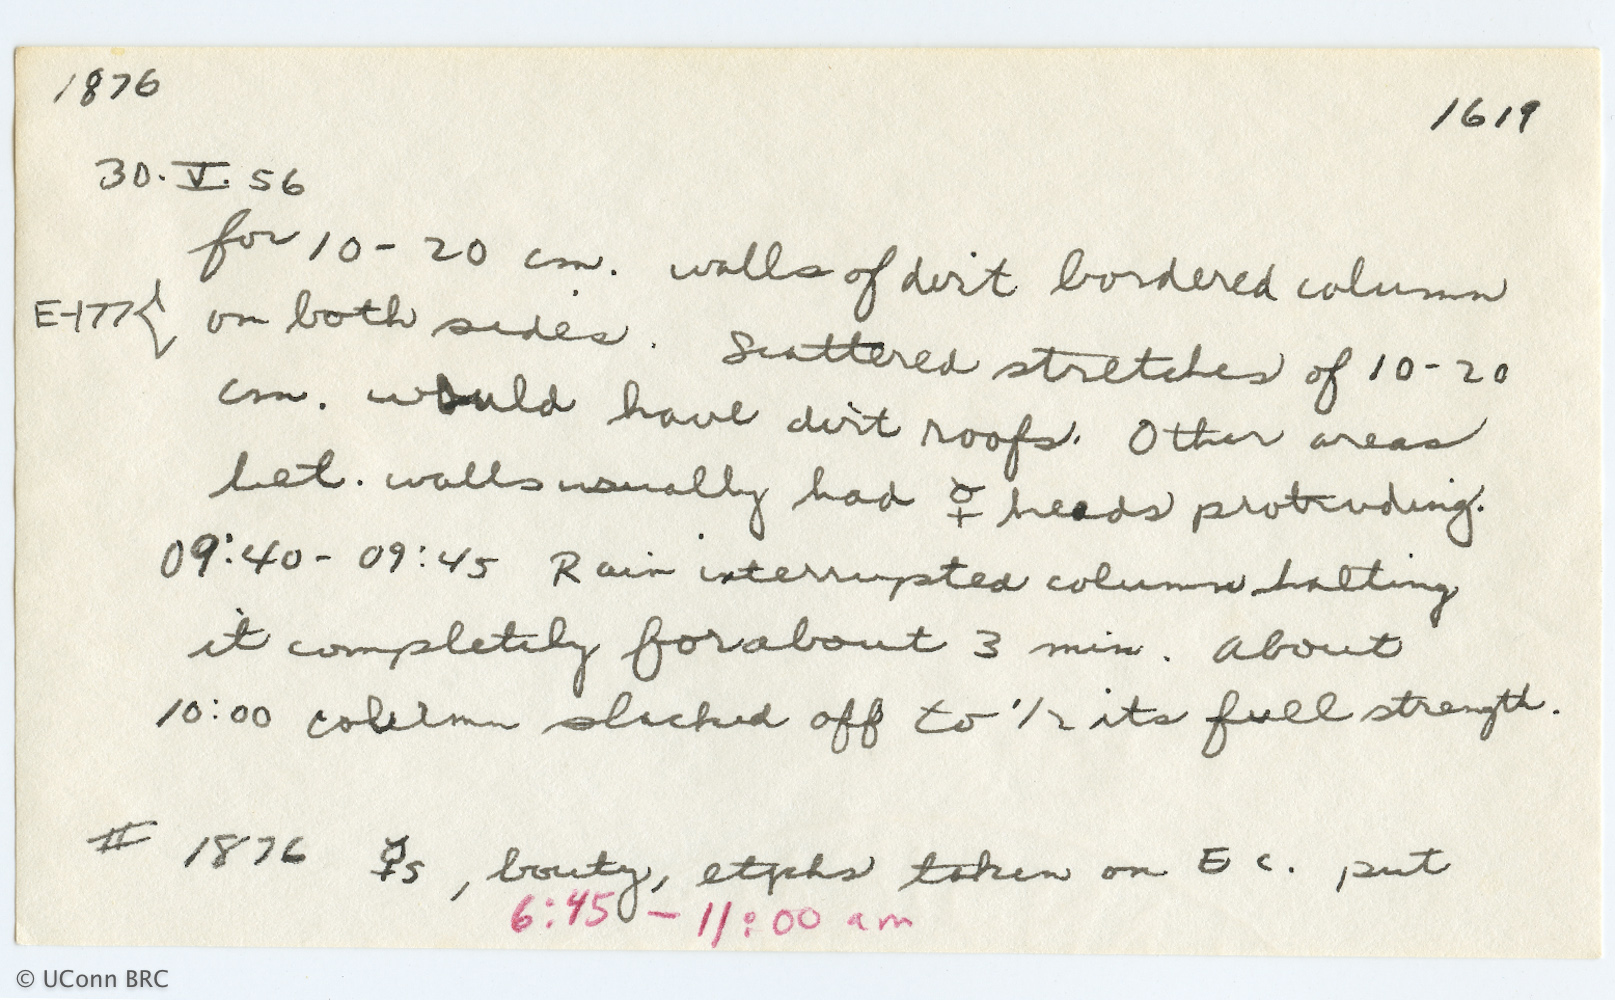 1876
1619
30. V. 56
for 10-20 cm. walls of dirt bordered column
E-177{ on both sides. Scattered stretches of 10-20
cm. would have dirt roofs. Other areas
bet. walls usually had ☿ heads protruding.
09:40 - 09:45 Rain interrupted column halting
it completely for about 3 min. About
10:00 column slacked off to 1/2 its full strength.
# 1876 ☿s, bouty, etphs taken on E c. put
6:45 - 11:00 am
© UConn BRC